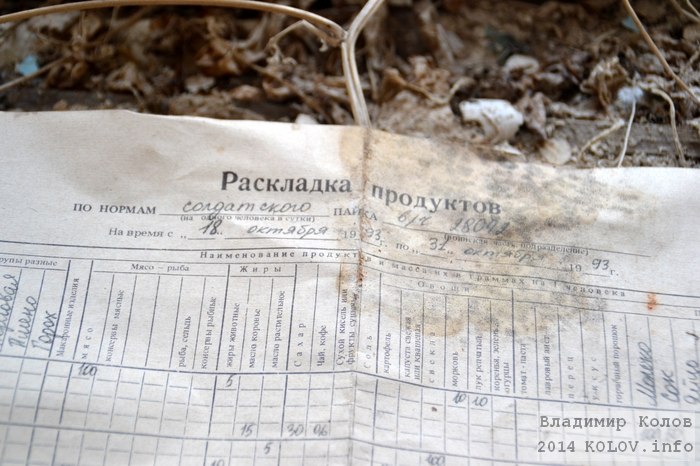 Раскладка продуктов
ПО НОРМАМ солдатского ПАЙКА в/ч
(на одного человека в сутки) (воинская часть, подразделение)
На время с „ 18. октября 1993г. по „ 31. октября 1993г.
Наименование продуктов и масса их в граммах на 1 человека
Мясо — рыба Жиры Овощи
Пшено
Горох
Макаронные изделия
мясо
консервы мясные
рыба, сельдь
консервы рыбные
жиры животные
масло коровье
масло растительное
Сахар
Чай, кофе
Сухой кисель или фрукты сушеные
Соль
картофель
капуста свежая или квашеная
свекла
морковь
лук репчатый
томат-паста
лавровый лист
перец
уксус
горчичный порошок
100 5 10 10
15 30 06
5
100
Владимир Колов
2014 KOLOV.info